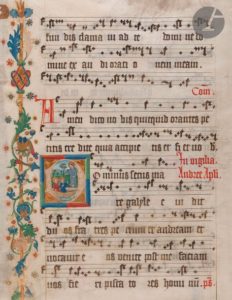 fun dis clama ui ad te do mi ne do
mine ex au di orati o nem meam.
Com̄.
A men dico vo bis quicquid orantes pe
titis cre dite quia accipie tis et fi et vo bis
In vigilia
Dominus secus ma Andree Apli.
re galyle e vi dit
du os fra tres pe trum et andream et
vocauit e os venite post me faciam
vos fie ri pisca to res homi nū. ps.